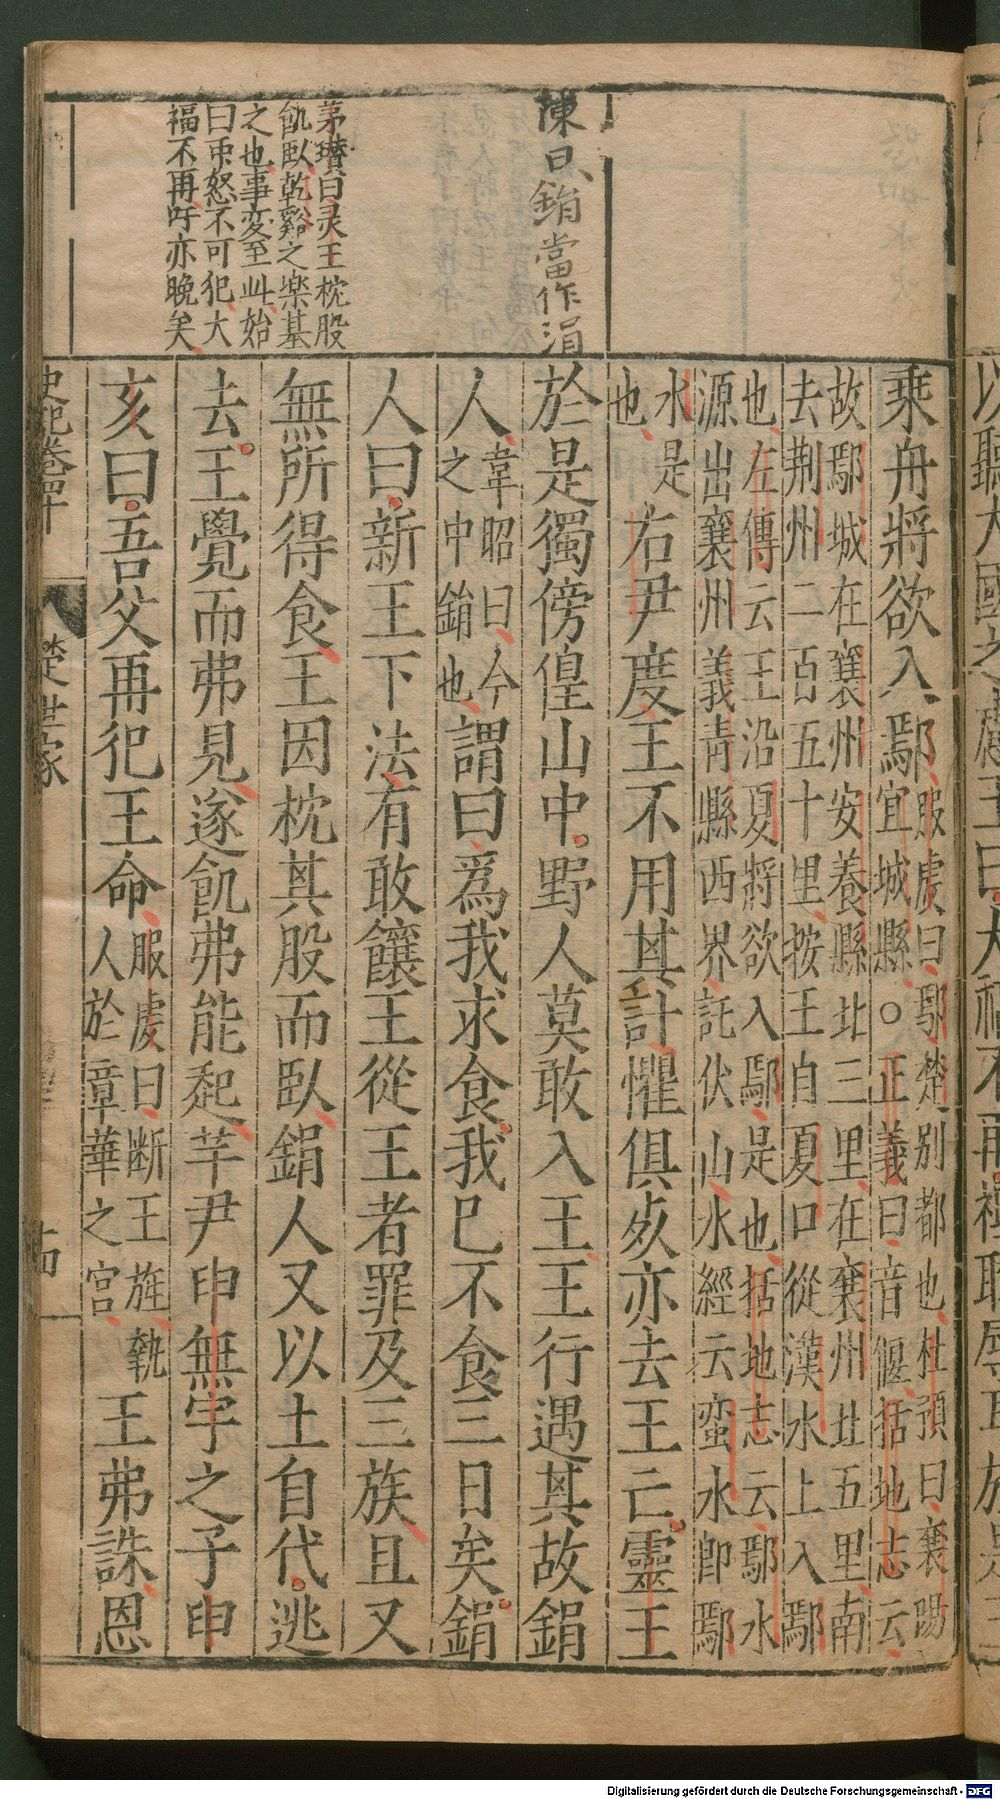 陳曰鋗當作涓
茅瓚曰灵王枕股
飢臥乾谿之楽基
之也事変至此始
曰衆怒不可犯大
福不再吁亦晚矣
乘舟將欲入鄢服虔曰鄢楚别都也杜預曰襄陽
宜城縣○正義曰音偃括地志云
故鄢城在襄州安養縣北三里在襄州北五里南
去荆州二百五十里按王自夏口從漢水上入鄢
也左傳云王沿夏將欲入鄢是也括地志云鄢水
源出襄州義青縣西界託伏山水經云蛮水即鄢
水是
也右尹度王不用其計懼俱死亦去王亡靈王
於是獨傍偟山中野人莫敢入王王行遇其故鋗
人韋昭曰今
之中鋗也謂曰爲我求食我已不食三日矣鋗
人曰新王下法有敢饟王從王者罪及三族且又
無所得食王因枕其股而臥鋗人又以土自代逃
去王覺而弗見遂飢弗能起芊尹申無宇之子申
亥曰吾父再犯王命服虔曰断王旌執
人於章華之宫王弗誅恩
史記卷四十
楚世家
十四
Digitalisierung gefördert durch die Deutsche Forschungsgemeinschaft - DFG